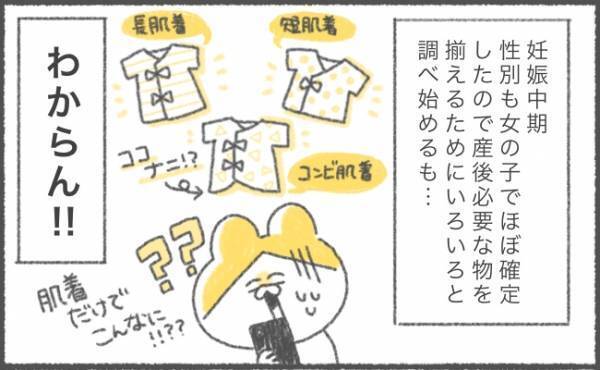 妊娠中期
性別も女の子でほぼ確定
したので産後必要な物を
揃えるためにいろいろと
調べ始めるも…
短肌着
長肌着
コンビ肌着
ココ
ナニ!?
わからん!!
??
肌着
だけで
こんなに
!!??